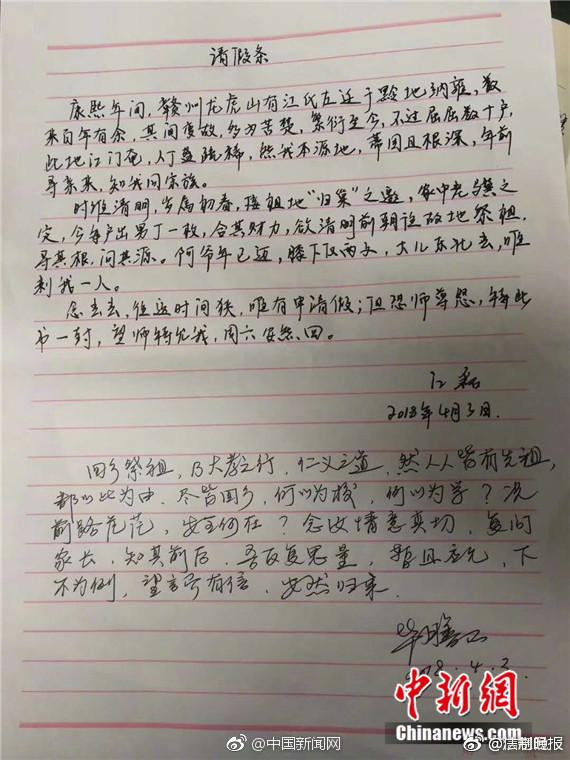 请假条
康熙年间，赣州龙虎山有江氏左迁于黔地纳雍，数
来百年有余，其间变故，多为苦楚，繁衍至今，不过屈屈数十户，
此地江门奄，人丁益疏稀，然我本源地，蒂固且根深，年前
寻亲来，知我同宗族。
时维清明，岁属初春，接祖地“归巢”之邀，家中老骥之
定，今每户出男丁一枚，合其财力，欲清明前朝访故地祭祖，
寻其根，问其源。何爷年已迈，膝下仅两丁，大儿东北去，唯
剩我一人。
念去去，往返时间狭，唯有申请假；但恐师尊怒，特此
书一封，望师特允我，周六安然回。
江磊
2018年4月3日.
回乡祭祖，乃大孝之行，仁义之道，然人人皆有先祖，
都以此为由，尽皆回乡，何以为校，何以为学？况
前路茫茫，安王何在？念汝情意真切，复问
家长，知其前后，吾反复思量，暂且应允，下
不为例，望言而有信，安然归来.
2018.4.3.
中新网
Chinanews.com
@中国新闻网
@法制晚报